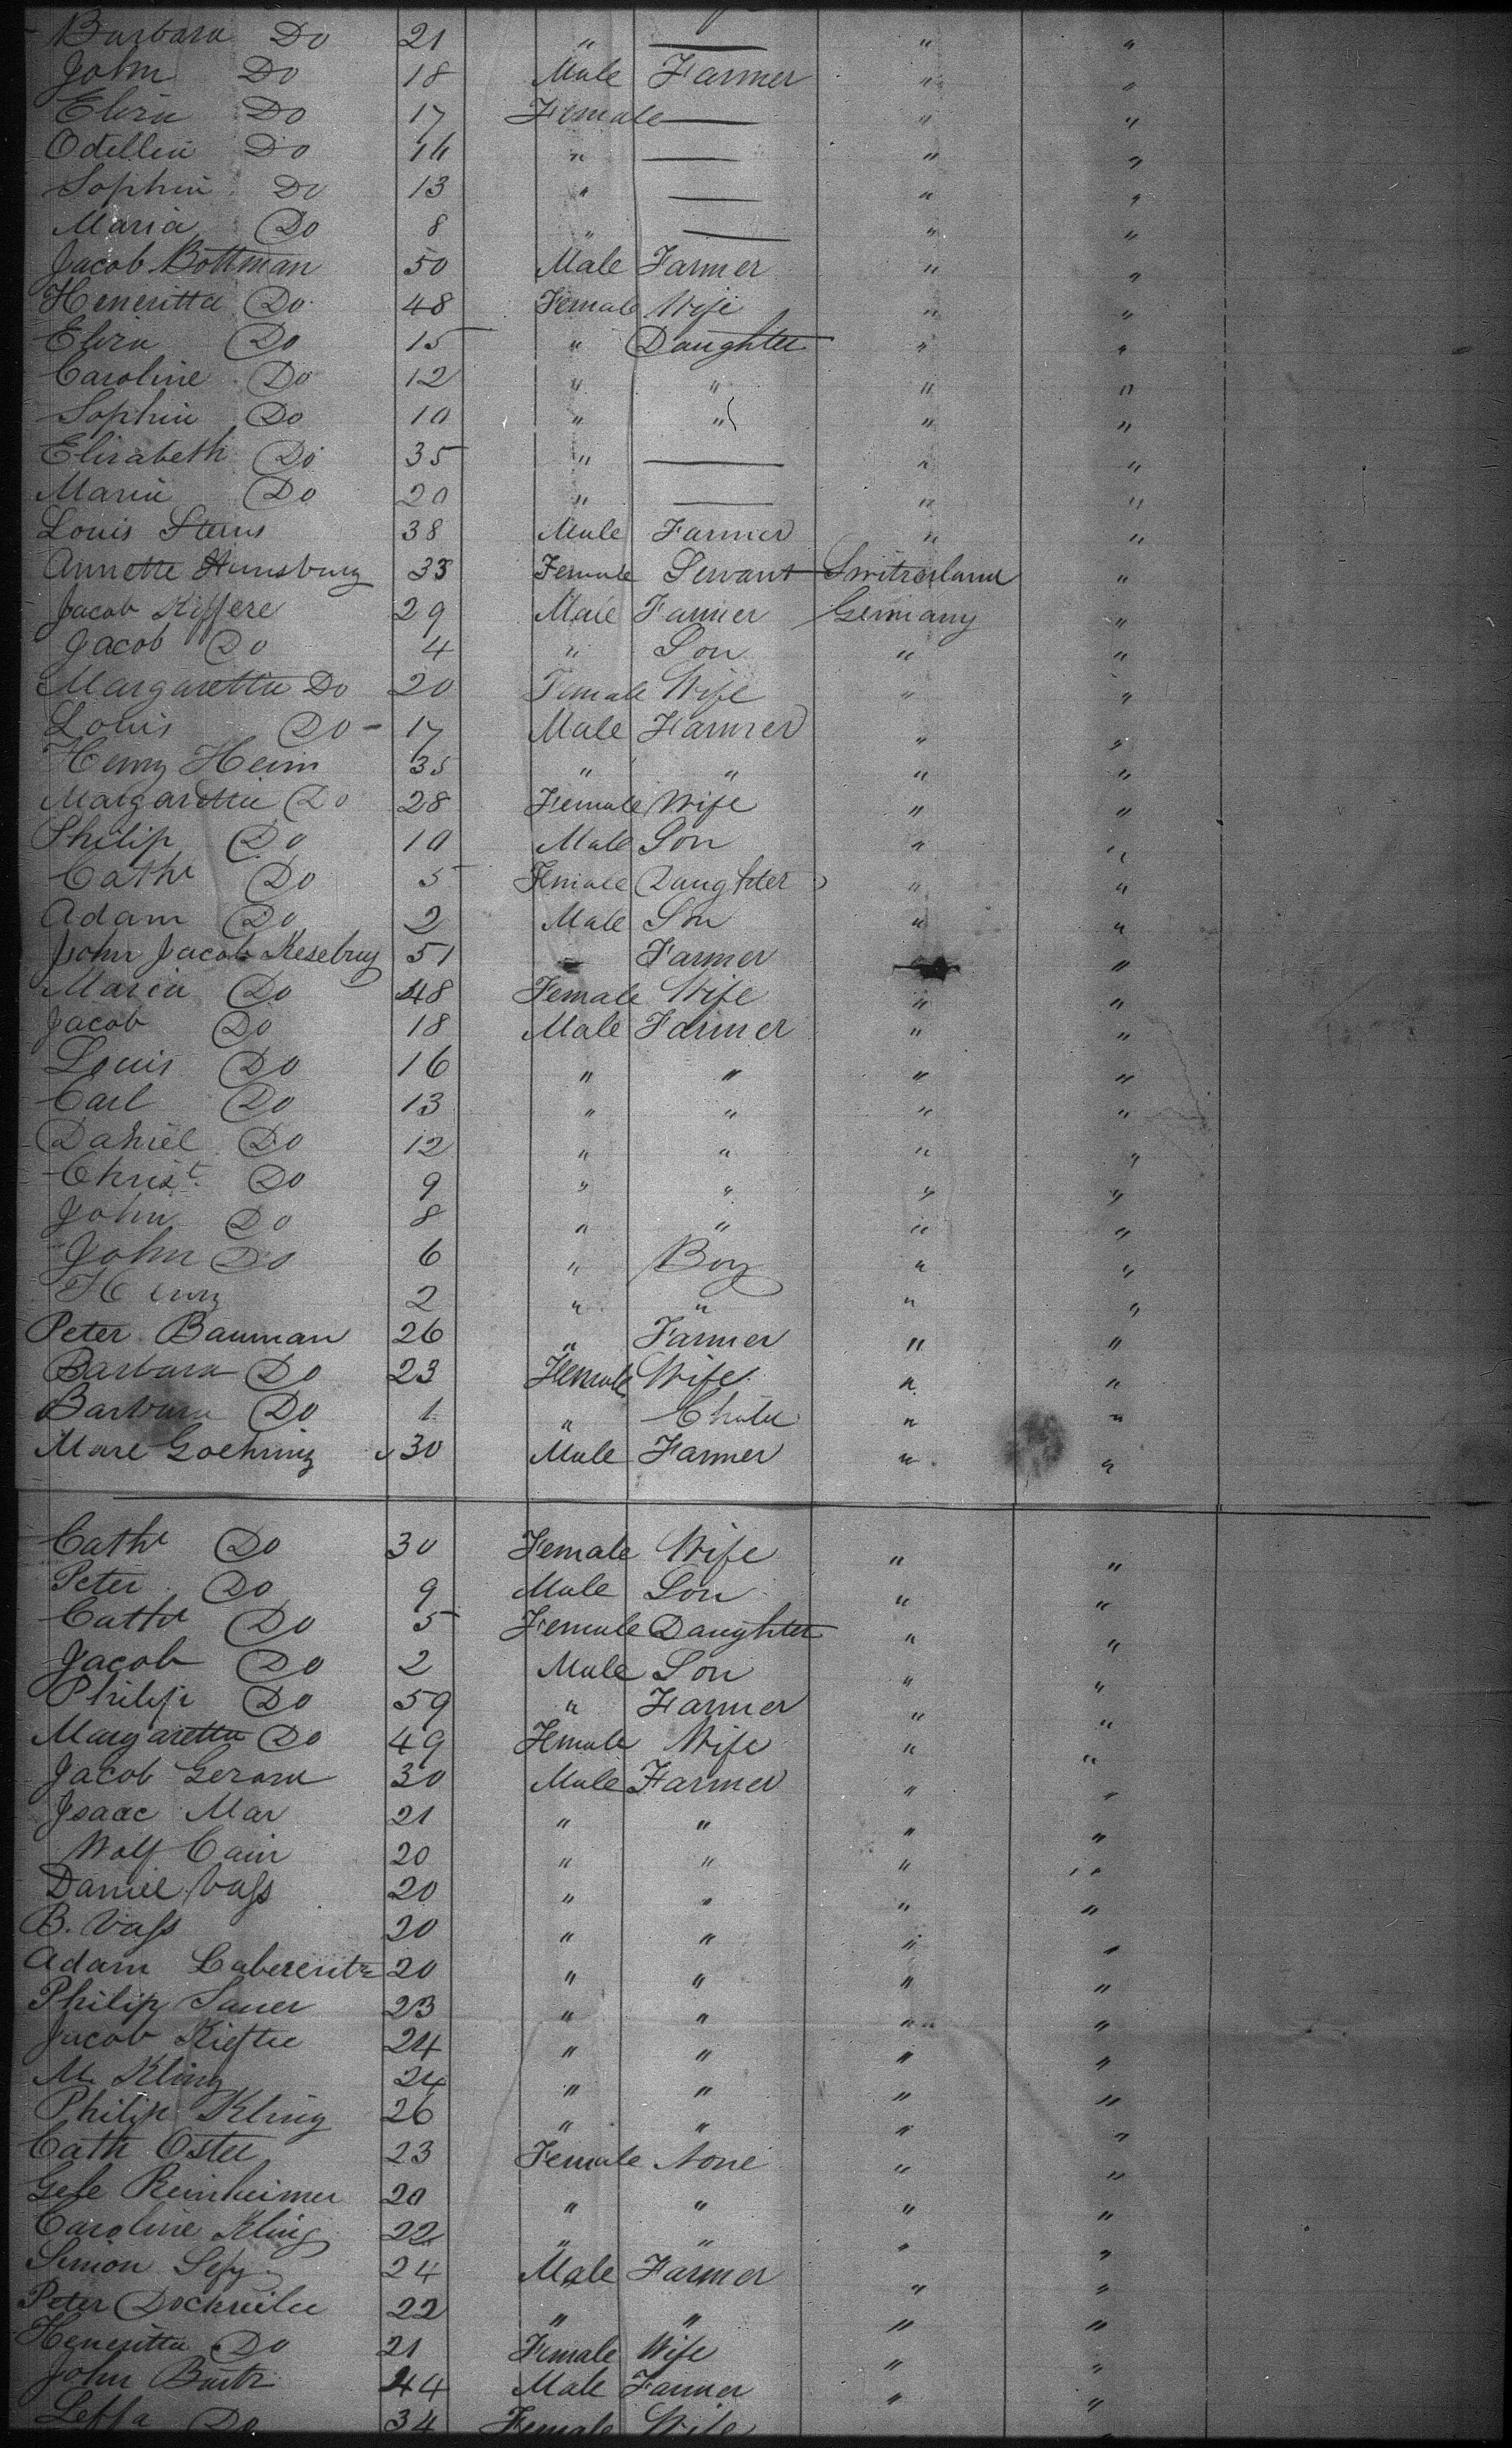 Barbara Do 21 " — " "
John Do 18 Male Farmer " "
Eliza Do 17 Female — " "
Odellia Do 14 " — " "
Sophia Do 13 " — " "
Maria Do 8 " — " "
Jacob Bottman 50 Male Farmer " "
Heneritta Do 48 Female Wife " "
Eliza Do 15 " Daughter " "
Caroline Do 12 " " " "
Sophia Do 10 " " " "
Elizabeth Do 35 " — " "
Maria Do 20 " — " "
Louis Sterns 38 Male Farmer " "
Annette 33 Female Servant Switzerland "
Jacob Kiffere 29 Male Farmer Germany "
Jacob Do 4 " Son " "
Margaretta Do 20 Female Wife " "
Louis Do 17 Male Farmer " "
Henry Heim 35 " " " "
Margaretta Do 28 Female Wife " "
Philip Do 10 Male Son " "
Cathe Do 5 Female Daughter " "
Adam Do 2 Male Son " "
John Jacob Kesebrug 51 Farmer "
Maria Do 48 Female Wife " "
Jacob Do 18 Male Farmer " "
Louis Do 16 " " " "
Carl Do 13 " " " "
Daniel Do 12 " " " "
Christ Do 9 " " " "
John Do 8 " " " "
John Do 6 " Boy " "
Henry 2 " " " "
Peter Bauman 26 " Farmer " "
Barbara Do 23 Female Wife " "
Barbara Do 1 " Child " "
Marc Goehring 30 Male Farmer " "
Cathe Do 30 Female Wife " "
Peter Do 9 Male Son " "
Cathe Do 5 Female Daughter " "
Jacob Do 2 Male Son " "
Philip Do 59 " Farmer " "
Margaretta Do 49 Female Wife " "
Jacob Gerard 30 Male Farmer " "
Isaac Mar 21 " " " "
Wolf Cain 20 " " " "
Daniel Vass 20 " " " "
B. Vass 20 " " " "
Adam Laberentz 20 " " " "
Philip Sauer 23 " " " "
Jacob 24 " " " "
M. Kling 24 " " " "
Philip Kling 26 " " " "
Cath Oster 23 Female None " "
Reinheimer 20 " " " "
Caroline Kling 22 " " " "
Simon 24 Male Farmer " "
Peter Dockweiler 22 " " " "
Heneritta Do 21 Female Wife " "
John 44 Male Farmer " "
Do 34 Female Wife